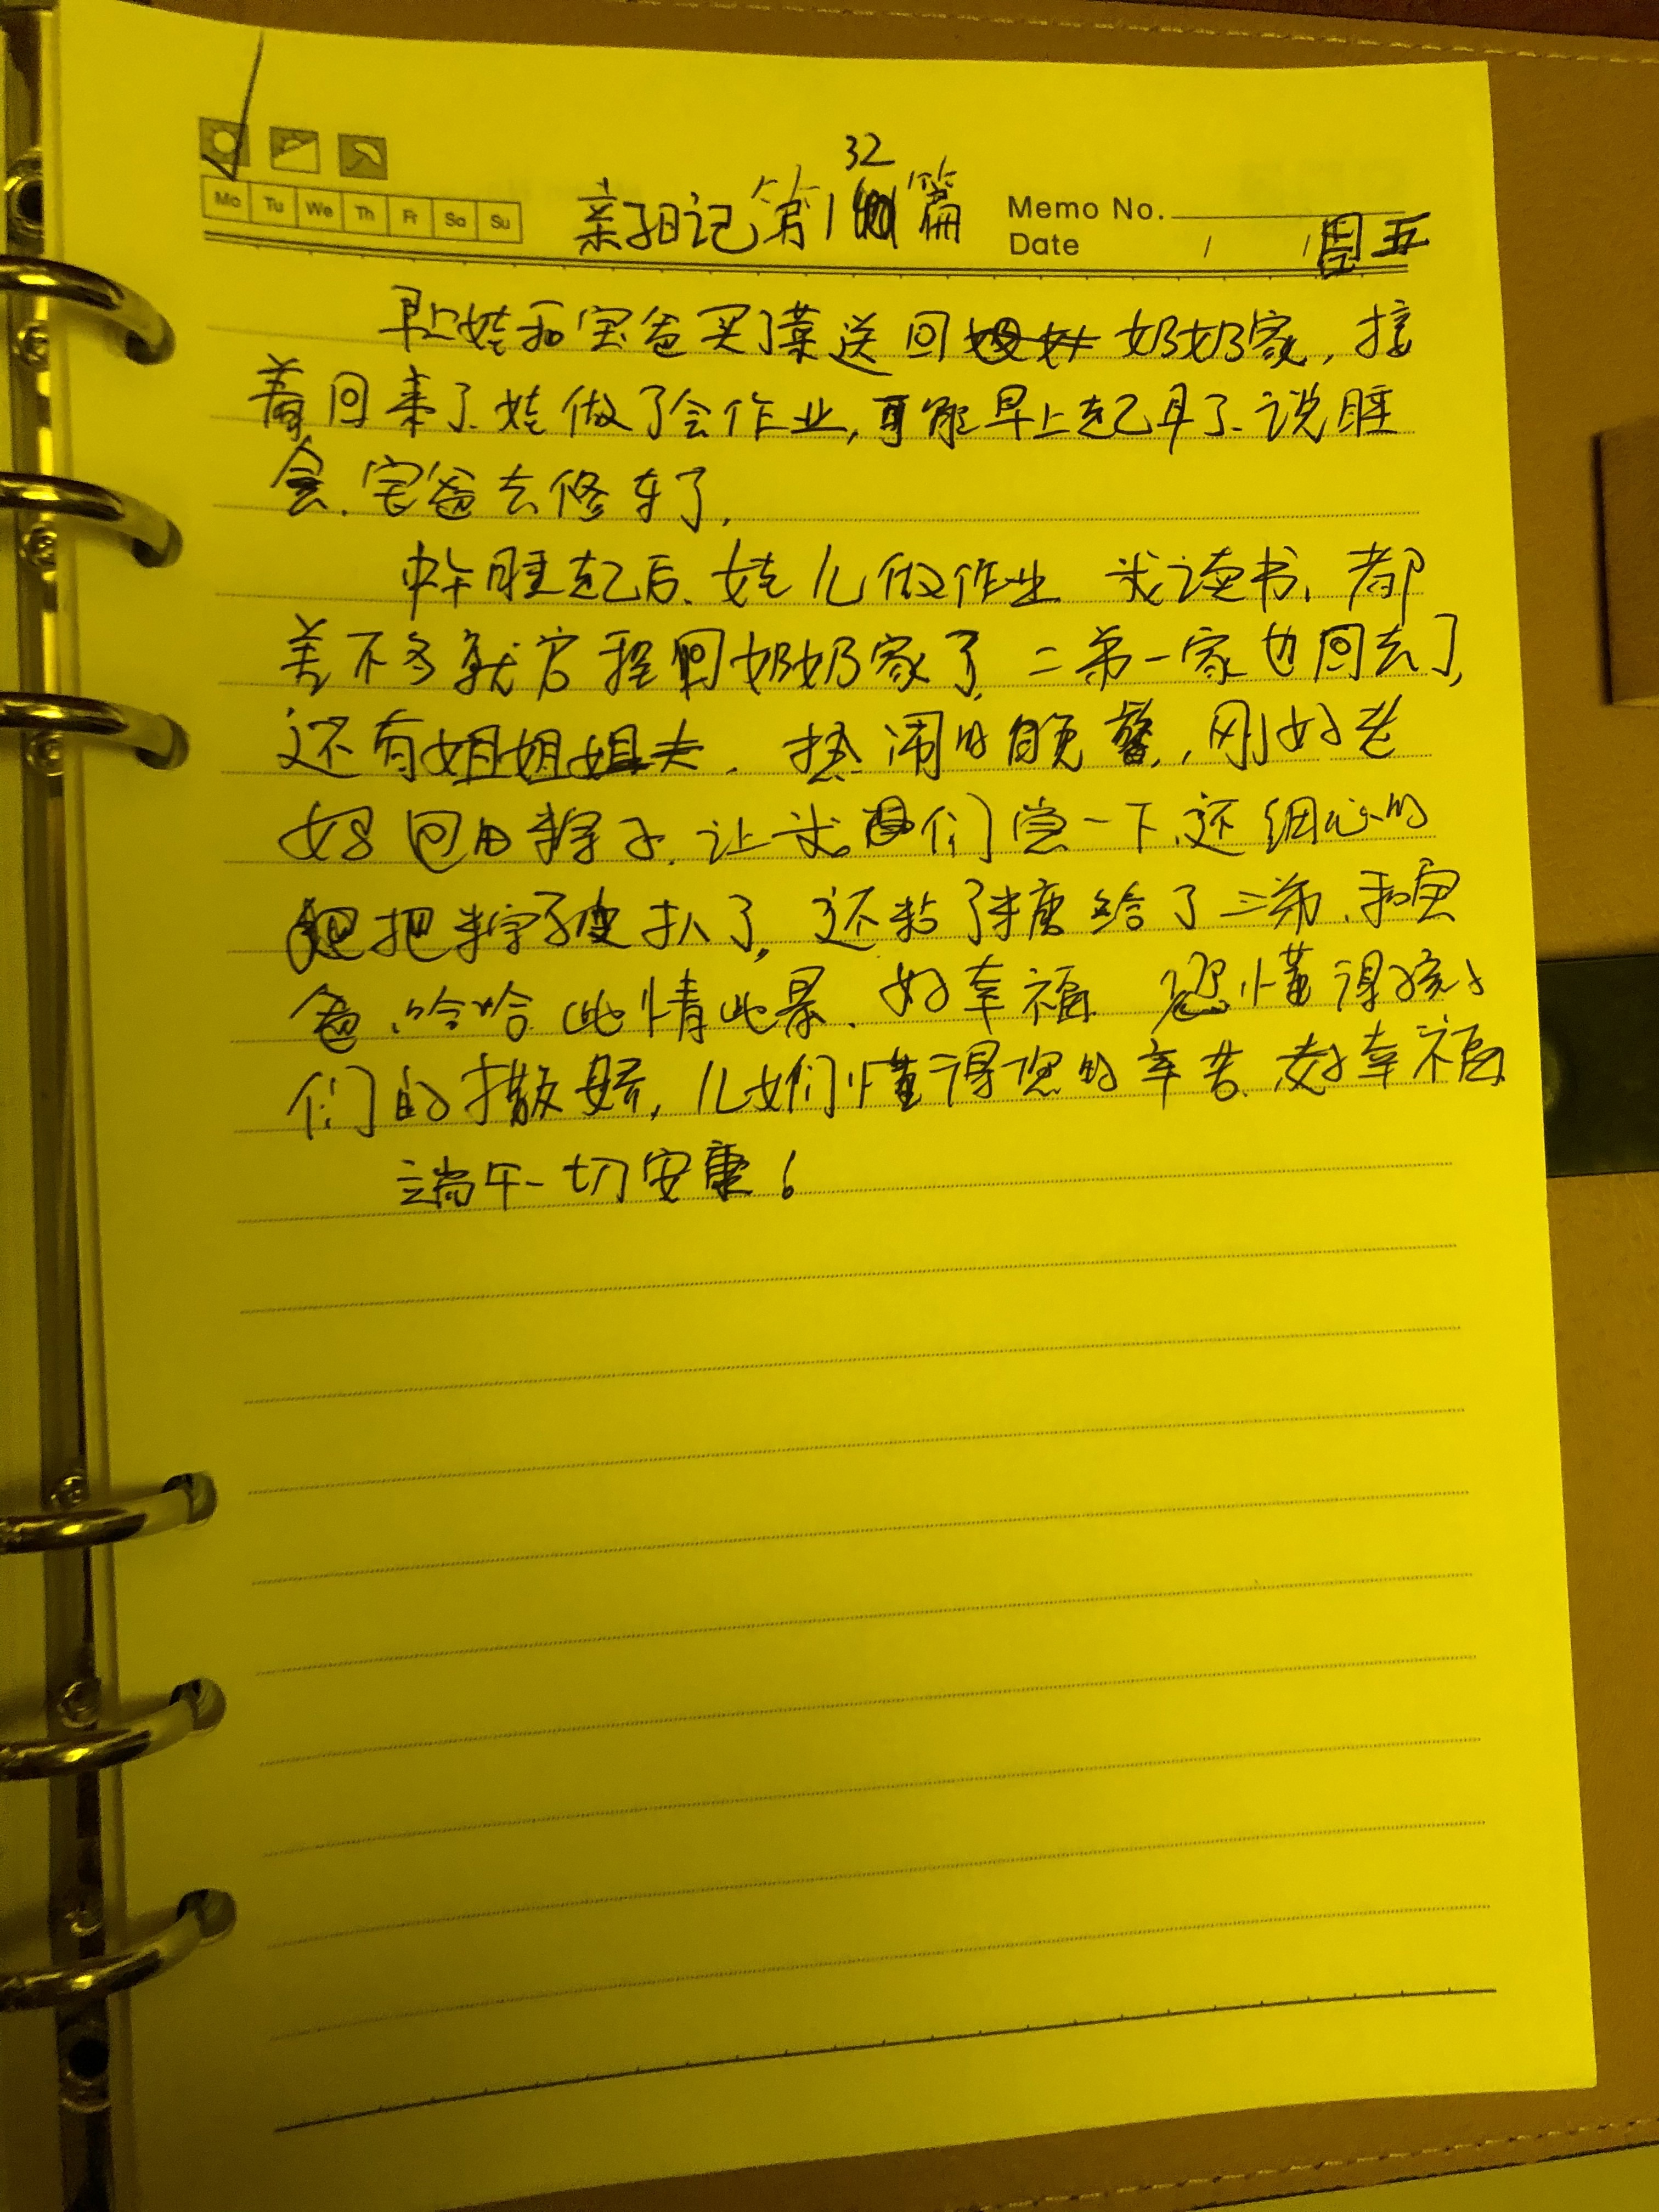 Mo Tu We Th Fr Sa Su
亲子日记第132篇
Memo No.
Date / / 周五
早上娃和宝爸买了菜送回奶奶家,接
着回来了.娃做了会作业,可能早上起早了.说睡
会.宝爸去修车了.
中午睡起后.娃儿做作业.我读书,都
差不多就启程回奶奶家了.二弟一家也回去了,
还有姐姐姐夫.热闹的晚餐,刚好老
妈回的粽子.让我们尝一下.还细心的
把粽子皮扒了,还粘了糖给了三弟.和宝
爸.哈哈.此情此景.好幸福.您懂得孩子
们的撒娇,儿女们懂得您的辛苦.好幸福
端午一切安康!